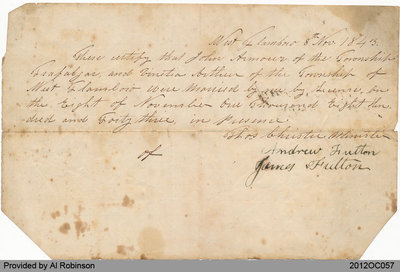 West Flambro 8th Nov 1843.
These certify that John Armour of the Township
Trafalgar, and Ginetia Arthur of the Township of
West Flamboro were Married by me by Licence, on
the Eight of November One Thousand Eight Hun
dred and Forty three in Presence
Thos Christie Minister
of
Andrew Fulton
James Fulton
Provided by Al Robinson
2012OC057